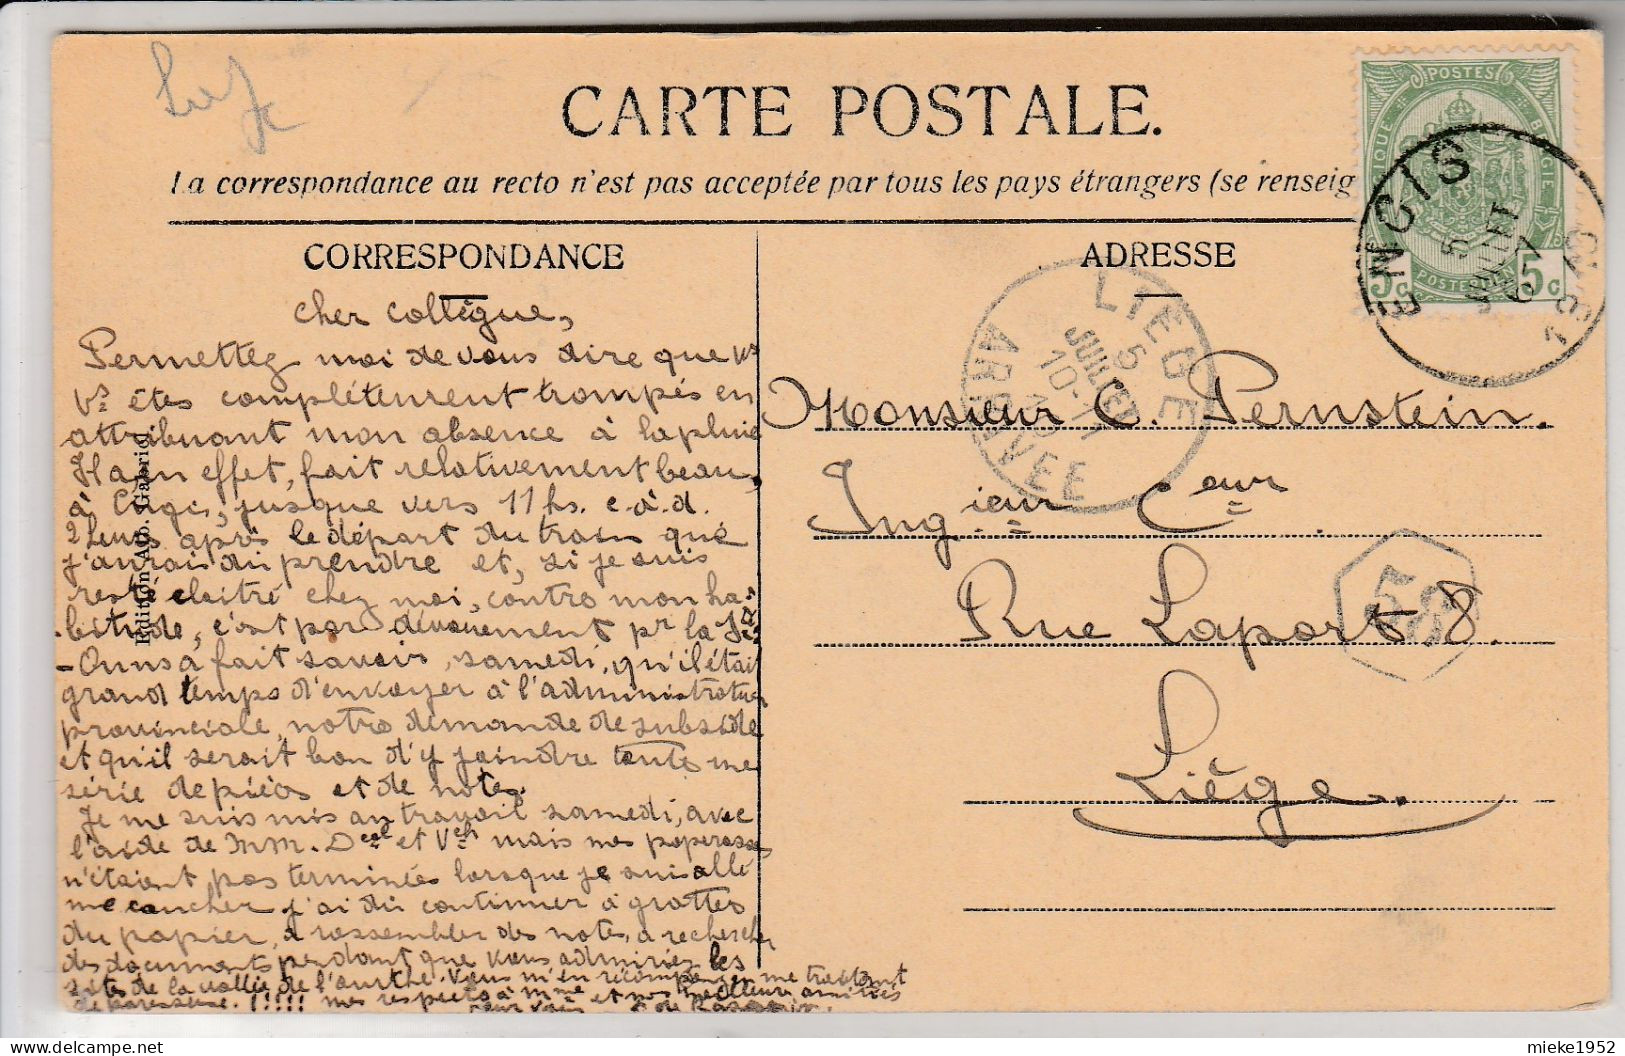 CARTE POSTALE.
La correspondance au recto n'est pas acceptée par tous les pays étrangers (se renseig
CORRESPONDANCE
cher collègue,
Permettez moi de vous dire que vs
vs êtes complètement trompés en
attribuant mon absence à la pluie
Il a en effet, fait relativement beau,
à Engis, jusque vers 11 hs. c.à.d.
2 heures après le départ du train que
j'aurais du prendre et, si je suis
resté cloitré chez moi, contre mon ha-
bitude, c'est par dévouement pr la Sté
- On ns a fait savoir, samedi, qu'il était
grand temps d'envoyer à l'administration
provinciale, notre demande de subside
et qu'il serait bon d'y joindre toute une
série de pièces et de notes.
Je me suis mis au travail samedi, avec
l'aide de MM. et mais mes paperasses
n'étaient pas terminées lorsque je suis allé
me coucher j'ai du continuer à gratter
du papier, à rassembler des notes, à rechercher
des documents pendant que vous admiriez les
sites de la vallée de l'ourthe. Vous m'en récompensez en me traitant
de paresseux. !!!!! mes respects à Mme et nos meilleures amitiés
Edition Gd. Galeries
ADRESSE
Monsieur C. Pernstein.
Ingieur Ceur
Rue Laport 8.
Liège.
POSTES
BELGIQUE BELGIE
POSTERIJEN
5c 5c
ENGIS
5
JUILLET
07
LIEGE
5
JUILLET
10-11
ARRIVEE
mieke1952